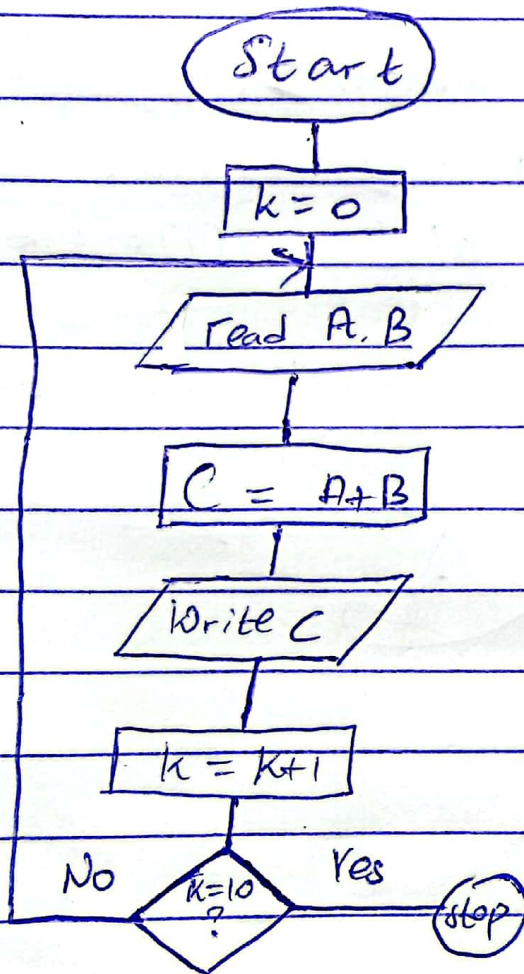 Start
k = 0
read A, B
C = A+B
Write C
k = k+1
No
k=10
?
Yes
stop